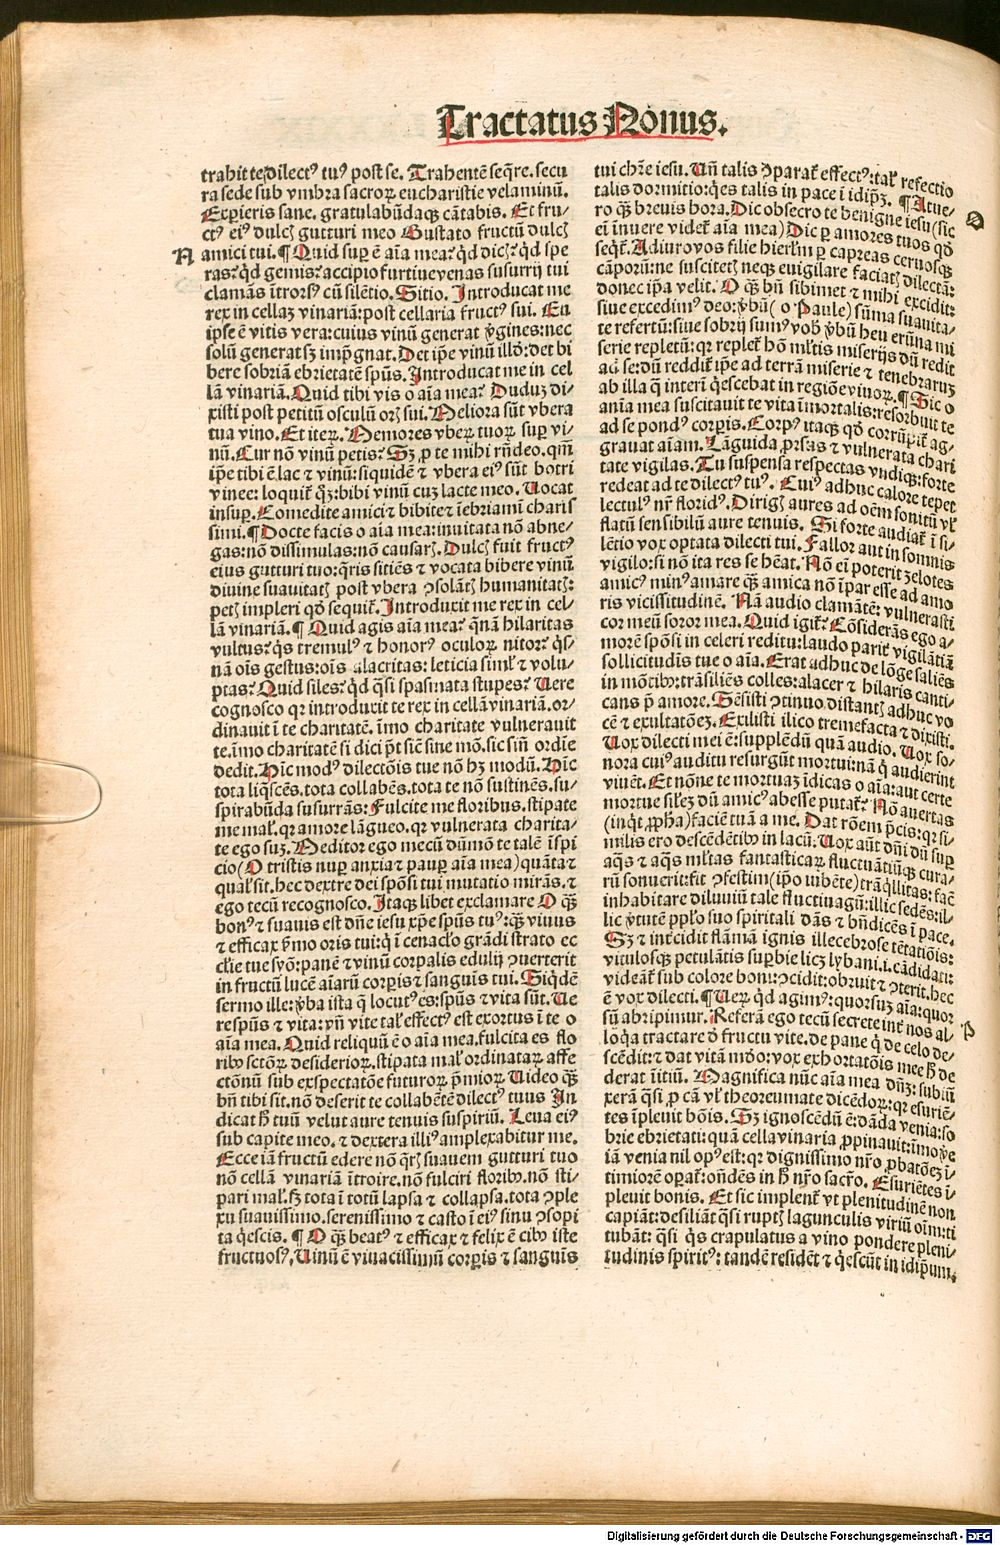 Tractatus Nonus.
trahit te dilectꝰ tuꝰ post se. Trahentē seq̄re. secu
ra sede sub vmbra sacroꝝ eucharistie velaminū.
Experieris sane. gratulabūdaqꝫ cātabis. Et fru-
ctꝰ eiꝰ dulcꝭ gutturi meo Gustato fructū dulcꝭ
N amici tui. ¶ Quid suꝑ ē aīa mea? qͥd dicꝭ? qͥd spe
ras? qͥd gemis? accipio furtiue venas susurrij tui
clamās ītrorsꝰ cū silētio. Sitio. Introducat me
rex in cellaꝫ vinariā: post cellaria fructꝰ sui. En
ipse ē vitis vera: cuius vinū generat ꝟgines: nec
solū generat sꝫ imp̄gnat. Det ip̄e vinū illḋ: det bi
bere sobriā ebrietatē spūs. Introducat me in cel
lā vinariā. Quid tibi vis o aīa mea? Duduꝫ di-
xisti post petitū osculū orꝭ sui. Meliora sūt vbera
tua vino. Et iteꝝ. Memores vbeꝝ tuoꝝ suꝑ vi-
nū. Cur nō vinū petis? Sꝫ ꝑ te mihi rn̄deo. qm̄
ip̄e tibi ē lac ⁊ vinū: siquidē ⁊ vbera eiꝰ sūt botri
vinee: loquit᷑ qꝫ: bibi vinū cuꝫ lacte meo. Uocat
insuꝑ. Comedite amici ⁊ bibite ⁊ īebriamī charis
simi. ¶ Docte facis o aīa mea: inuitata nō abne-
gas: nō dissimulas: nō causarꝭ. Dulcꝭ fuit fructꝰ
eius gutturi tuo: q̄ris sitiēs ⁊ vocata bibere vinū
diuine suauitatꝭ post vbera ꝯsolātꝭ humanitatꝭ:
petꝭ impleri qḋ sequit᷑. Introduxit me rex in cel-
lā vinariā. ¶ Quid agis aīa mea? q̄nā hilaritas
vultus? qͥs tremulꝰ ⁊ honorꝰ oculoꝝ nitor? qͥs-
nā oīs gestus: oīs alacritas: leticia siml̓ ⁊ volu-
ptas? Quid siles? qͥd q̄si spasmata stupes? Uere
cognosco qꝛ introduxit te rex in cellā vinariā. or-
dinauit ī te charitatē. īmo charitate vulnerauit
te. īmo charitatē si dici p̄t siē sine mō. sic sm̄ ordīe
dedit. Hīc modꝰ dilectōis tue nō hꝫ modū. Hīc
tota liq̄scēs. tota collabēs. tota te nō sustinēs. su-
spirabūda susurrās: Fulcite me floribus. stipate
me mal̓. qꝛ amore lāgueo. qꝛ vulnerata charita-
te ego suꝫ. Meditor ego mecū dūmō te talē īspi
cio (O tristis nuꝑ anxia ⁊ pauꝑ aīa mea) quāta ⁊
qual̓ sit. hec dextre dei spōsi tui mutatio mirās. ⁊
ego tecū recognosco. Itaqꝫ libet exclamare O qꝫ̄
bonꝰ ⁊ suauis est dn̄e iesu xp̄e spūs tuꝰ: qꝫ̄ viuus
⁊ efficax p̄mo oris tui: q̄ ī cenacl̓o grādi strato ec
cl̓ie tue syō: panē ⁊ vinū corꝑalis edulij ꝯuerterit
in fructū lucē aīarū corꝑis ⁊ sanguis tui. Siqͥdē
sermo ille: ꝟba ista q̄ locutꝰ es: spūs ⁊ vita sūt. Ue
re spūs ⁊ vita: vn̄ vite tal̓ effectꝰ est exortus ī te o
aīa mea. Quid reliquū ē o aīa mea. fulcita es flo
ribꝰ sctōꝝ desiderioꝝ. stipata mal̓ ordinataꝝ affe
ctōnū sub exspectatōe futuroꝝ p̄mioꝝ. Uideo qꝫ̄
bn̄ tibi sit. nō deserit te collabētē dilectꝰ tuus In
dicat ħ tuū velut aure tenuis suspiriū. Leua eiꝰ
sub capite meo. ⁊ dextera illiꝰ amplexabitur me.
Ecce iā fructū edere nō q̄rꝭ suauem gutturi tuo
nō cellā vinariā ītroire. nō fulciri floribꝰ. nō sti-
pari mal̓. sꝫ tota ī totū lapsa ⁊ collapsa. tota ꝯple
xu suauissimo. serenissimo ⁊ casto ī eiꝰ sinu ꝯsopi
ta qͥescis. ¶ O qꝫ̄ beatꝰ ⁊ efficax ⁊ felix ē cibꝰ iste
fructuosꝰ. Uinū ē viuacissimū corꝑis ⁊ sanguīs
tui chr̄e iesu. Un̄ talis p̄parat᷑ effectꝰ: tal̓ refectio
talis dormitio: qͥes talis in pace ī idip̄ꝫ. ¶ Atue-
ro qꝫ̄ breuis hora. Dic obsecro te benigne iesu (sic O
ei īnuere videt᷑ aīa mea) Dic ꝑ amores tuos qḋ
seqt᷑. Adiuro vos filie hierl̓m ꝑ capreas ceruosqꝫ
cāporū: ne suscitetꝭ neqꝫ euigilare faciatꝭ dilectā:
donec ip̄a velit. O qꝫ̄ bn̄ sibimet ⁊ mihi exciditꝭ
siue excedimꝰ deo: ꝟbū (o Paule) sūma suauita-
te refertū: siue sobrij sumꝰ vob̄ ꝟbū heu erūna mi
serie repletū: qꝛ replet᷑ hō ml̓tis miserijs dū redit
ad se: dū reddit᷑ ip̄e ad terrā miserie ⁊ tenebraruꝫ
ab illa q̄ interī qͥescebat in regiōe viuoꝝ. ¶ Sic o
anīa mea suscitauit te vita īmortalis: resorbuit te
ad se pondꝰ corꝑis. Corpꝰ itaqꝫ qḋ corrūpit᷑ ag-
grauat aīam. Lāguida ꝓrsas ⁊ vulnerata chari
tate vigilas. Tu suspensa respectas vndiqꝫ: forte
redeat ad te dilectꝰ tuꝰ. Cuiꝰ adhuc calore tepet
lectulꝰ nr̄ floridꝰ. Dirigꝭ aures ad oēm sonitū vl̓
flatū sensibilū aure tenuis. Si forte audiat᷑ ī si-
lētio vox optata dilecti tui. Fallor aut in somnis
vigilo: si nō ita res se hēat. Nō ei poterit zelotes
amicꝰ minꝰ amare qꝫ̄ amica nō īpar esse ad amo
ris vicissitudinē. Nā audio clamātē: vulnerasti
cor meū soror mea. Quid igit᷑? Cōsiderās ego a-
morē spōsi in celeri reditu: laudo parit᷑ vigilātiā
sollicitudīs tue o aīa. Erat adhuc de lōge saliēs
in mōtibꝰ: trāsiliēs colles: alacer ⁊ hilaris canti-
cans p̄ amore. Sēsisti ꝯtinuo distantꝭ adhuc vo
cē ⁊ exultatōeꝫ. Exilisti ilico tremefacta ⁊ dixisti.
Uox dilecti mei ē: supplēdū quā audio. Uox so-
nora cuiꝰ auditu resurgūt mortui: nā q̄ audierint
viuēt. Et nōne te mortuaꝫ īdicas o aīa: aut certe
mortue sil̓eꝫ dū amicꝰ abesse putat᷑? Nō auertas
(inqͥt ꝓph̄a) faciē tuā a me. Dat rōem p̄cis: qꝛ si-
milis ero descēdētibꝰ in lacū. Uox aūt dn̄i dū suꝑ
aqͣs ⁊ aqͣs ml̓tas fantasticaꝝ fluctuātiūqꝫ cura-
rū sonuerit: fit ꝯfestim (ip̄o iubēte) trāqͥllitas: fac̄
inhabitare diluuiū tale fluctiuagū: illic sedēs: il-
lic ꝟtutē ppl̓o suo spiritali dās ⁊ bn̄dicēs ī pace.
Sꝫ ⁊ int᷑cidit flāmā ignis illecebrose tētatiōis:
vitulosqꝫ petulātis suꝑbie licꝫ lybani. i. cādidati:
videāt᷑ sub colore boni: ꝯcidit: obruit ⁊ ꝯterit. hec
ē vox dilecti. ¶ Ueꝝ qͥd agimꝰ: quorsuꝫ aīa: quor P
sū abripimur. Referā ego tecū secrete int᷑ nos al-
loq̄a tractare ḋ fructu vite. de pane q̄ de celo de-
scēdit: ⁊ dat vitā mūdo: vox exhortatōis mee ħ de
derat īitiū. Magnifica nūc aīa mea dn̄ꝫ: subiū
xerā q̄si ꝓ cā vl̓ theoreumate dicēdoꝝ: qꝛ esuriē-
tes īpleuit bōis. Sꝫ ignoscēdū ē: dāda venia: so
brie ebrietati: quā cella vinaria ꝓpinauit: īmo ꝟe
iā venia nil opꝰ est: qꝛ dignissimo nr̄o ꝓbatōeꝫ ī-
timiorē oꝑat᷑: on̄dēs in ħ nr̄o sacr̄o. Esuriētes ī-
pleuit bonis. Et sic implent᷑ vt plenitudinē non
capiāt: desiliāt q̄si ruptꝭ lagunculis viriū oīm: ti
tubāt: q̄si qͥs crapulatus a vino pondere pleni-
tudinis spiritꝰ: tandē residēt ⁊ qͥescūt in idip̄um.
Digitalisierung gefördert durch die Deutsche Forschungsgemeinschaft - DFG